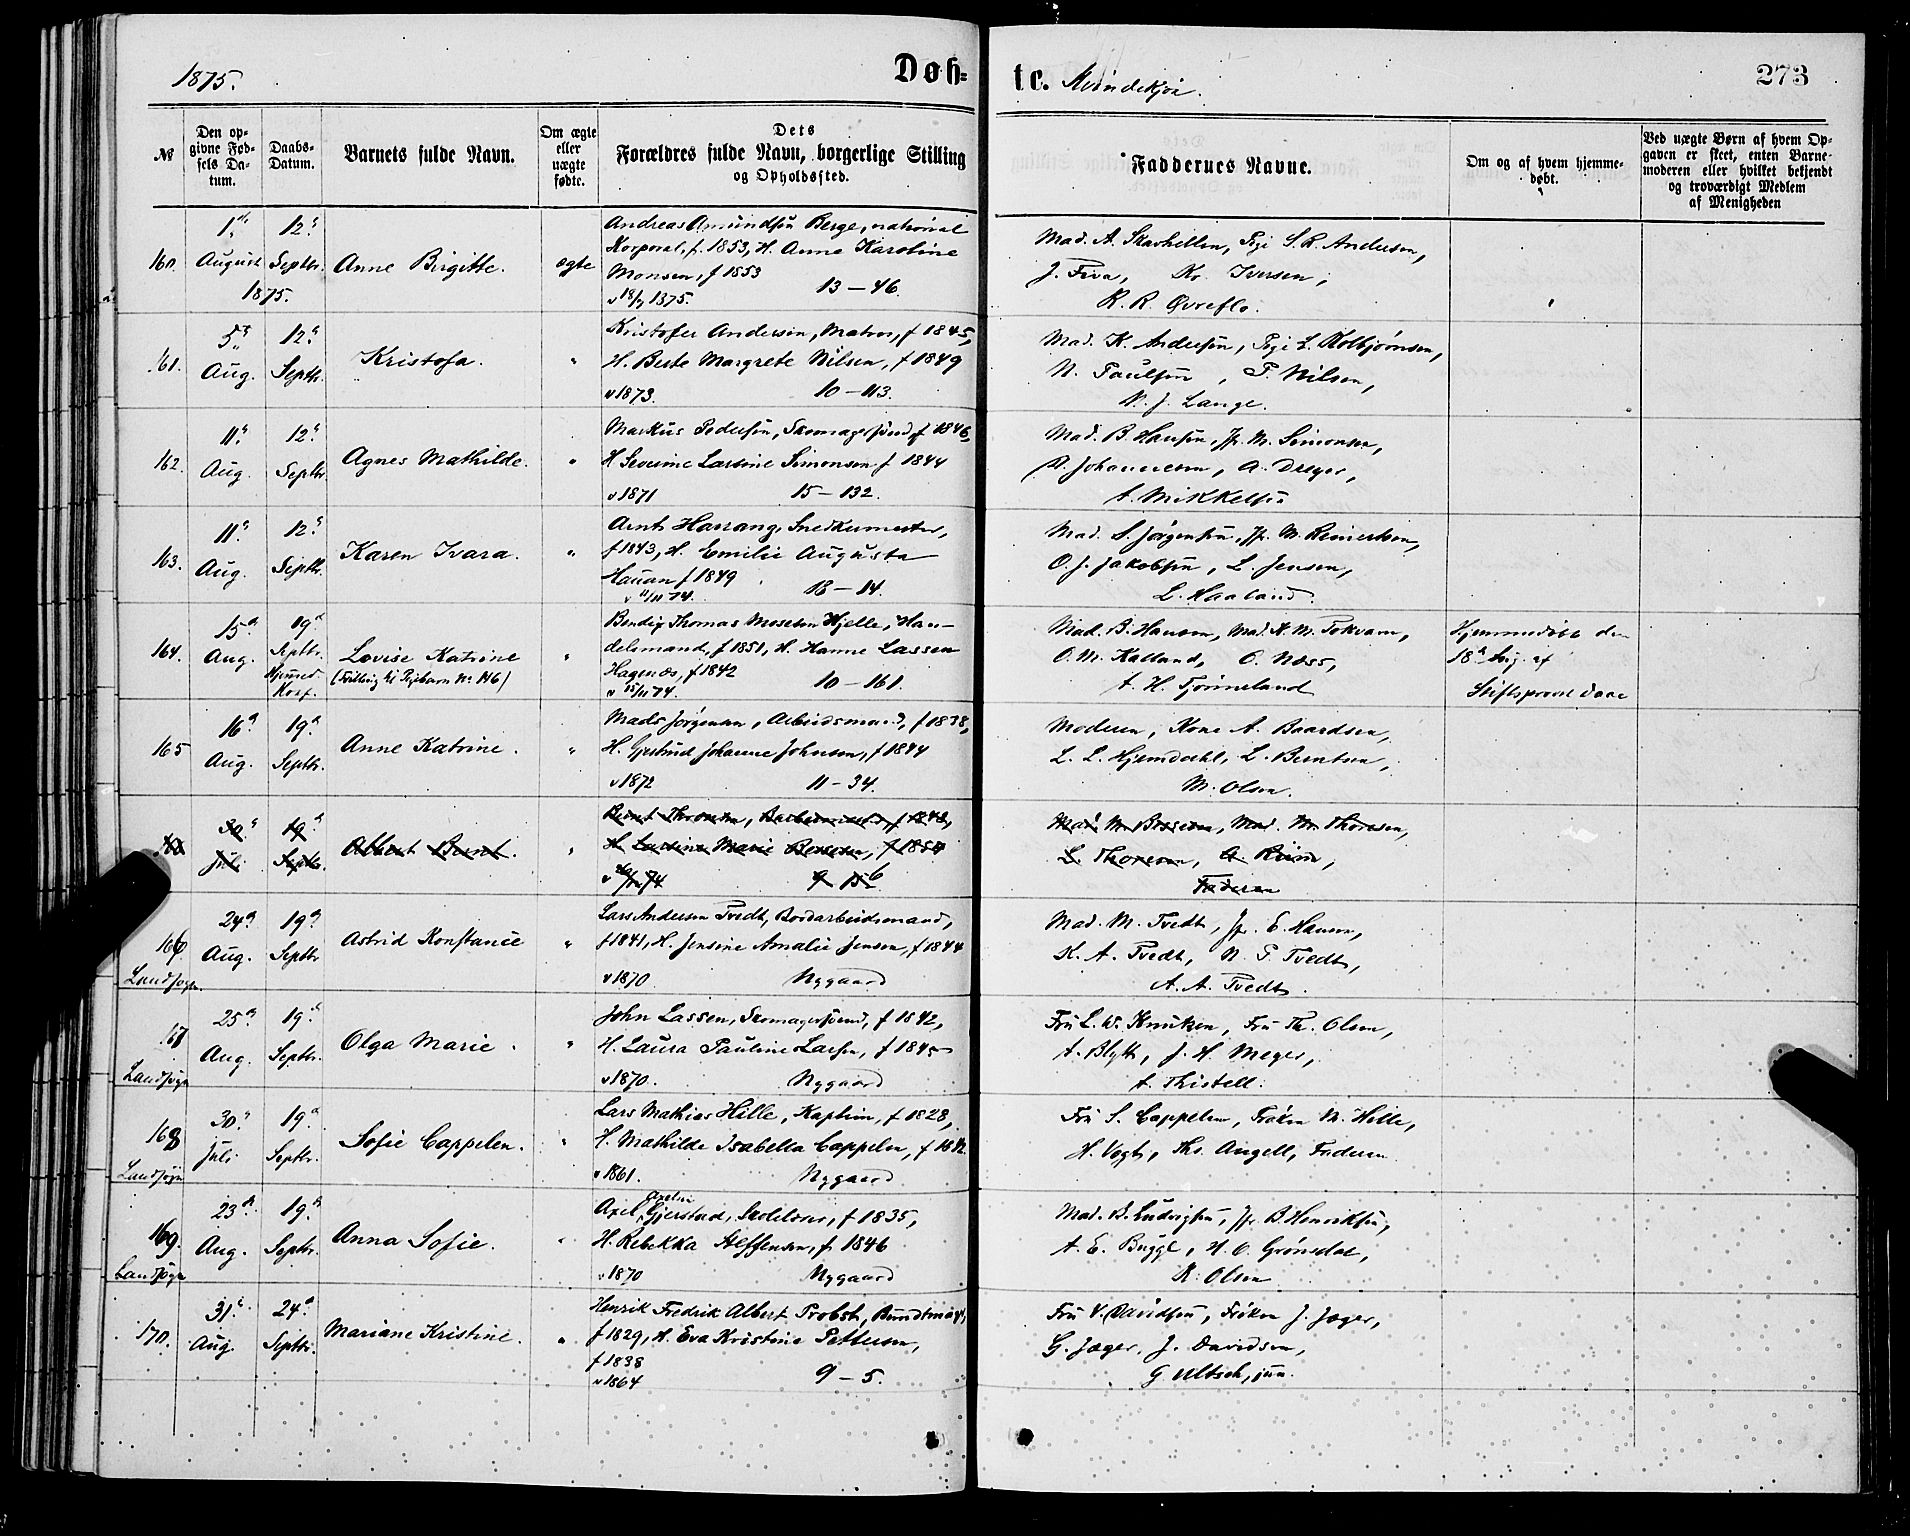 1875.
Døb-
te. Kvindekjøn.
273
№
Den op-
givne Fød-
sels Da-
tum.
Daabs-
Datum.
Barnets fulde Navn.
Om ægte
eller
uægte
fødte.
Dets
Forældres fulde Navn, borgerlige Stilling
og Opholdssted.
Faddernes Navne.
Om og af hvem hjemme-
døbt.
Ved uægte Børn af hvem Op-
gaven er skeet, enten Barne-
moderen eller hvilket bekjendt
og troværdigt Medlem
af Menigheden
160. August 1875. 12 Septbr. Anne Birgitte. ægte
Andreas Amundsen Berge, national
Korporal, f. 1853, H. Anne Karoline
Monsen, f 1853 13 — 46.
Mad. A. Skavhellen, Pige S. R. Andersen,
J. Fiva, Kr. Iversen,
K. R. Øvreflo.
161. 5 Aug. 12 Septbr. Kristofa. "
Kristofer Andersen, Matros, f 1845,
H. Berte Margrete Nilsen, f 1849
v 1873. 10 — 113.
Mad. K. Andersen, Pige L. Kolbjørnsen,
N. Paulsen, P. Nilsen,
N. J. Lange.
162. 11 Aug. 12 Septbr. Agnes Mathilde. "
Markus Pedersen, Skomagersvend f 1846,
H Severine Larsine Simonsen f 1844
v 1871 15 — 132.
Mad. B. Hansen, Jfr. M. Simonsen,
P. Johannesen, A. Dreyer,
A. Mikkelsen
163. 11 Aug. 12 Septbr. Karen Ivara. "
Arnt Harrang, Snedkermester,
f 1843, H. Emilie Augusta
Hauan f 1849 18 — 14.
v 11/11 74.
Mad. S. Jørgensen, Jfr. M. Reinertsen,
O. J. Jakobsen, L. Jensen,
L. Haaland.
164. 15 Aug. 19 Septbr. Lovise Katrine "
Hjemmed. Konf.
(Tvilling til Pigebarn No 146)
Bendix Thomas Mosesen Hjelle, Han-
delsmand, f 1851, H. Hanne Lassen
Hagenæs, f 1842 10 — 161.
v 15/11 74.
Mad. B. Hansen, Mad. K. M. Tokvam,
O. M. Kalland, O. Næss,
A. H. Tjønneland
Hjemmedøbt den
18 Aug. af
Stiftsprovst Daae
165 16 Aug. 19 Septbr. Anne Katrine. "
Mads Jørgensen, Arbeidsmand, f 1838,
H. Gjertrud Johanne Johnsen, f 1844
v 1872 11 — 34.
Moderen, Kone A. Baardsen,
L. L. Hjemdahl, L. Berntsen,
M. Olsen.
30 Juli 19 Septbr. Albert Bernt. "
H. Larsine Marie
Mad. M. Mad. M. Thoresen,
L. Thoresen,
Faderen
166 24 Aug. 19 Septbr Astrid Konstance "
Landsogn.
Lars Andersen Tvedt, Bordarbeidsmand,
f 1841, H. Jensine Amalie Jensen, f 1844
v 1870 Nygaard
Mad. M. Tvedt, Jfr. E. Hansen,
K. A. Tvedt, N. P. Tvedt,
A. A. Tvedt.
167 25 Aug. 19 Septbr. Olga Marie. "
Landsogn
John Lassen, Skomagersvend, f 1842,
H. Laura Pauline Larsen, f 1845
v 1870. Nygaard
Fru L. W. Knutzen, Fru Th. Olsen,
A. Blytt, J. H. Meyer,
A. Thistell.
168 30 Juli 19 Septbr. Sofie Cappelen. "
Landsogn
Lars Mathias Hille, Kaptein, f 1828,
H. Mathilde Isabella Cappelen, f 1842.
v 1861. Nygaard
Fru S. Cappelen, Frøken M. Hille,
H. Vogt, Ths. Angell, Faderen
169. 23 Aug. 19 Septbr. Anna Sofie. "
Landsogn
Axel Axelsen Gjerstad, Skolelærer, f 1835,
H. Rebekka Steffensen, f. 1846
v 1870 Nygaard
Mad. B. Ludvigsen, Jfr. B. Henriksen,
A. E. Bugge, H. O. Grønsdal,
R. Olsen
170. 31 Aug. 24 Septbr. Mariane Kristine. "
Henrik Fredrik Albert Probst, Bundtmager,
f 1829, H. Eva Kristine Pettersen,
f 1838 9 — 5.
v 1864
Fru V. Davidsen, Frøken J. Jæger,
G. Jæger, J. Davidsen,
G. Ultsch, jun.